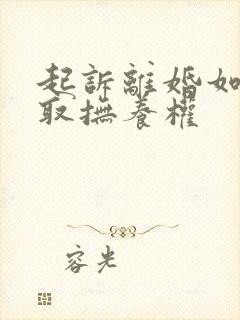 起訴離婚如
取撫養權
容光